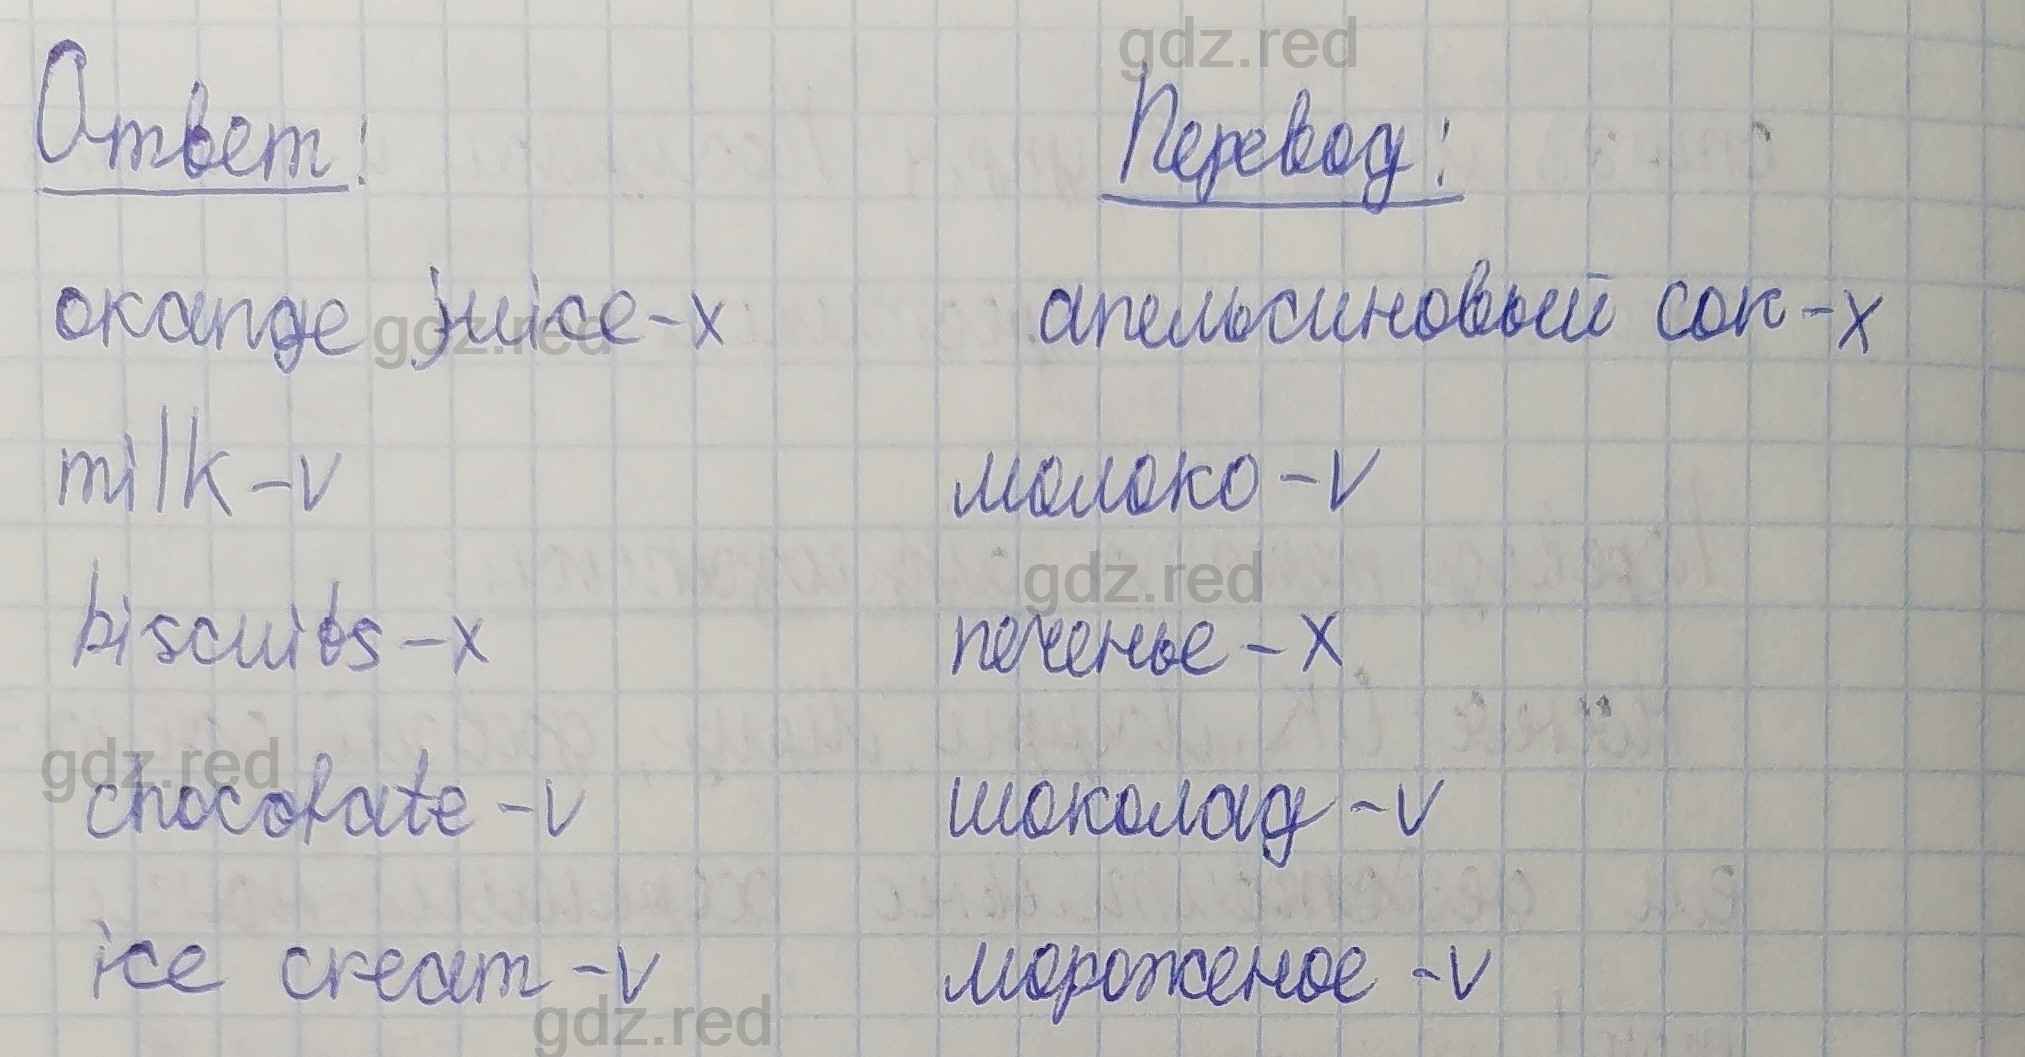 gdz.red
Ответ: Перевод:
orange juice - x апельсиновый сок - x
gdz.red
milk - v молоко - v
gdz.red
biscuits - x печенье - x
gdz.red
chocolate - v шоколад - v
ice cream - v мороженое - v
gdz.red